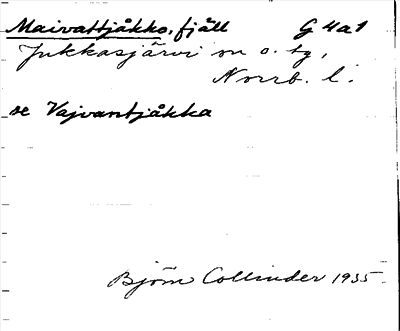 Maivattjåkko, fjäll G 4a1
Jukkasjärvi sn o. tg,
Norrb. l.
se Vajvantjåkka
Björn Collinder 1935